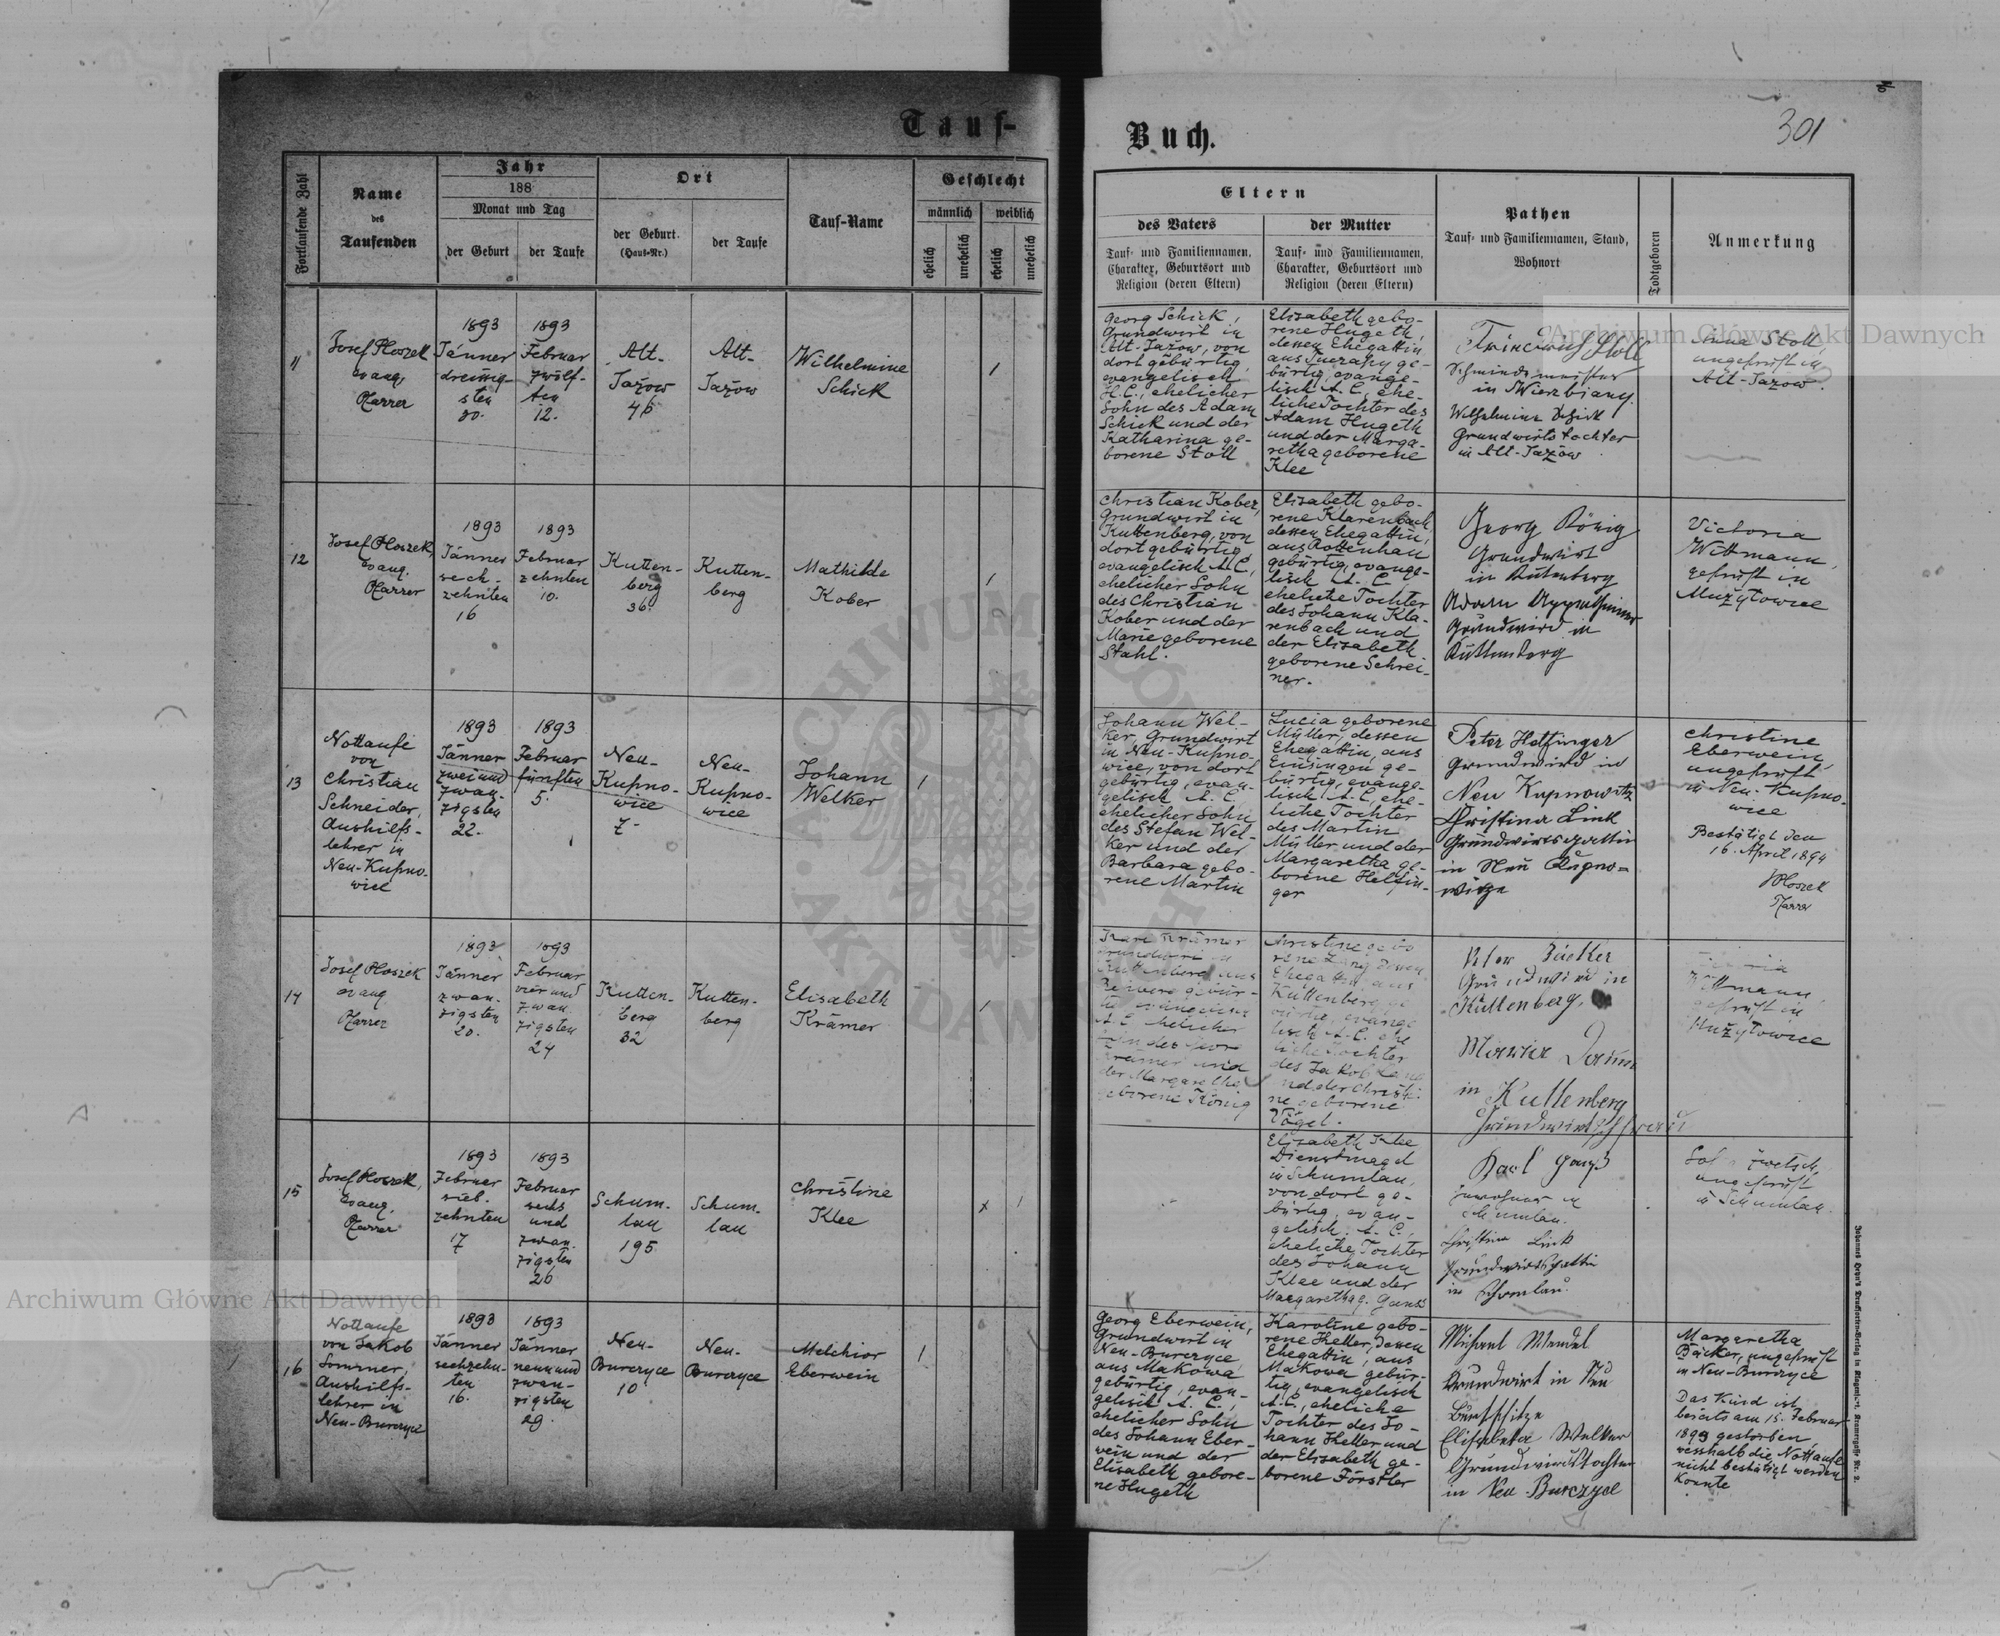 Tauf-
Buch.
301
Fortlaufende Zahl
Name
des
Taufenden
Jahr
188
Monat und Tag
der Geburt
der Taufe
Ort
der Geburt.
(Haus-Nr.)
der Taufe
Tauf-Name
Geschlecht
männlich
weiblich
ehelich
unehelich
ehelich
unehelich
Eltern
des Vaters
Tauf- und Familiennamen,
Charakter, Geburtsort und
Religion (deren Eltern)
der Mutter
Tauf- und Familiennamen,
Charakter, Geburtsort und
Religion (deren Eltern)
Pathen
Tauf- und Familiennamen, Stand,
Wohnort
Todtgeboren
Anmerkung
11
Josef Ploszek
evang.
Pfarrer
1893
Jänner
dreissig-
sten
30.
1893
Februar
zwölf-
ten
12.
Alt-
Jazow
46
Alt-
Jazow
Wilhelmine
Schick
1
Georg Schick,
Grundwirt in
Alt-Jazow, von
dort gebürtig,
evangelisch
H.C., ehelicher
Sohn des Adam
Schick und der
Katharina ge-
borene Stoll
Elisabeth gebo-
rene Hugeth,
dessen Ehegattin,
aus ge-
bürtig, evange-
lisch A.C., ehe-
liche Tochter des
Adam Hugeth
und der Marga-
retha geborene
Klee
Stoll
Schmiedemeister
in Wierzbiany.
Wilhelmine Schick
Grundwirtstochter
in Alt-Jazow.
Anna Stoll,
ungeprüft in
Alt-Jazow
12
Josef Ploszek,
evang.
Pfarrer
1893
Jänner
sech-
zehnten
16
1893
Februar
zehnten
10.
Kutten-
berg
36
Kutten-
berg
Mathilde
Kober
1
Christian Kober,
Grundwirt in
Kuttenberg, von
dort gebürtig,
evangelisch A.C.,
ehelicher Sohn
des Christian
Kober und der
Marie geborene
Stahl.
Elisabeth gebo-
rene Klarenbach,
dessen Ehegattin,
aus Rottenhan
gebürtig, evange-
lisch A. C.,
eheliche Tochter
des Johann Kla-
renbach und
der Elisabeth
geborene Schrei-
ner.
Georg König
Grundwirt
in Kutenberg
Adam
Grundwird in
Kuttenberg
Victoria
Wittmann,
geprüft in
Mużyłowice
13
Nottaufe
von
Christian
Schneider,
Aushilfs-
lehrer in
Neu-Kupno-
wice
1893
Jänner
zwei und
zwan-
zigsten
22.
1893
Februar
fünften
5.
Neu-
Kupno-
wice
7.
Neu-
Kupno-
wice
Johann
Welker
1
Johann Wel-
ker, Grundwirt
in Neu-Kupno-
wice, von dort
gebürtig, evan-
gelisch A. C.,
ehelicher Sohn
des Stefan Wel-
ker und der
Barbara gebo-
rene Martin
Lucia geborene
Müller, dessen
Ehegattin, aus
Einsingen ge-
bürtig, evange-
lisch A.C., ehe-
liche Tochter
des Martin
Müller und der
Margaretha ge-
borene Helfin-
ger
Peter Helfinger
Grundwird in
Neu Kupnowitz
Christina Link
Grundwirtsgattin
in Neu Kupno-
witze
Christine
Eberwein,
ungeprüft
in Neu-Kupno-
wice
Bestätigt den
16. April 1894
JPloszek
Pfarrer
14
Josef Ploszek
evang.
Pfarrer
1893
Jänner
zwan-
zigsten
20.
1893
Februar
vier und
zwan-
zigsten
24
Kutten-
berg
32
Kutten-
berg
Elisabeth
Krämer
1
Karl Krämer
Grundwirt in
Kuttenberg, aus
gebür-
tig, evangelisch
A.C., ehelicher
Sohn des
Krämer und
der Margaretha
geborene König
Christine gebo-
rene Lang, dessen
Ehegattin, aus
Kuttenberg ge-
bürtig, evange-
lisch A.C., ehe-
liche Tochter
des Jakob Lang
und der Christi-
ne geborene
Vögel.
Grundwird in
Kuttenberg.
in Kuttenberg
Wittmann,
geprüft in
Mużyłowice
15
Josef Ploszek,
evang.
Pfarrer
1893
Februar
sieb-
zehnten
17
1893
Februar
sechs
und
zwan-
zigsten
26
Schum-
lau
195
Schum-
lau
Christine
Klee
x
1
Elisabeth Klee
Dienstmagd
in Schumlau,
von dort ge-
bürtig, evan-
gelisch A. C.,
eheliche Tochter
des Johann
Klee und der
Margaretha g. Ganss
Karl Ganß
Inwohner in
Schumlau.
Christine Link
Grundwirtsgattin
in Schomlau.
ungeprüft
in Schumlau.
16
Nottaufe
von Jakob
Sommer,
Aushilfs-
lehrer in
Neu-Burczyce
1893
Jänner
sechzehn-
ten
16.
1893
Jänner
neun und
zwan-
zigsten
29.
Neu-
Burczyce
10
Neu-
Burczyce
Melchior
Eberwein
1
Georg Eberwein,
Grundwirt in
Neu-Burczyce,
aus Makowa
gebürtig, evan-
gelisch A. C.,
ehelicher Sohn
des Johann Eber-
wein und der
Elisabeth gebore-
ne Hugeth
Karoline gebo-
rene Heller, dessen
Ehegattin, aus
Makowa gebür-
tig, evangelisch
A.C., eheliche
Tochter des Jo-
hann Heller und
der Elisabeth ge-
borene Förstler
Michael Mendel
Grundwirt in Neu
Elisabeta Welker
Grundwirdstochter
in Neu Burczyce
Margaretha
Bäcker, ungeprüft
in Neu-Burczyce
Das Kind ist
bereits am 15. Februar
1893 gestorben
wesshalb die Nottaufe
nicht bestätigt werden
konnte
Archiwum Główne Akt Dawnych
Archiwum Główne Akt Dawnych